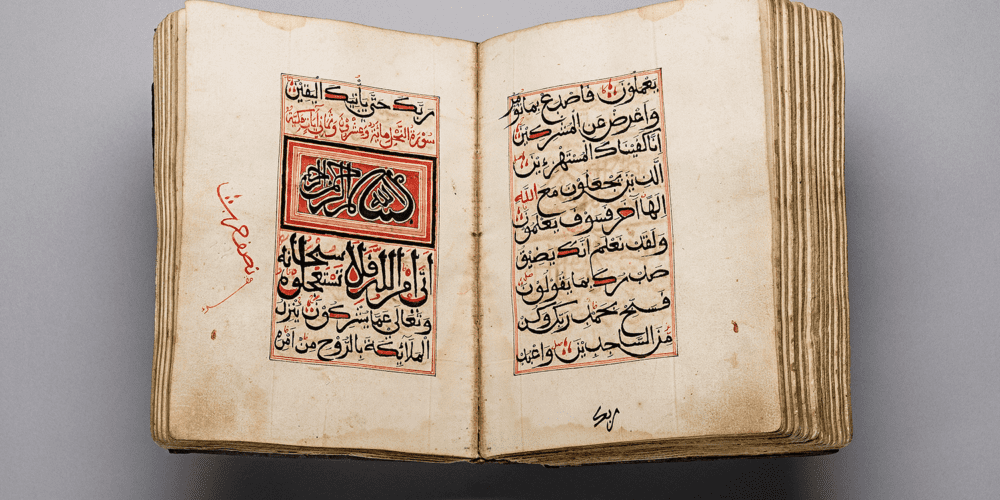 يعملون فاصدع بما تؤمر
واعرض عن المشركين
انا كفيناك المستهزءين
الذين يجعلون مع الله
الها اخر فسوف يعلمون
ولقد نعلم انك يضيق
صدرك بما يقولون
فسبح بحمد ربك وكن
من الساجدين واعبد
ربك
ربك حتى يأتيك اليقين
سورة النحل مائة وعشرون وثماني آيات مكية
بسم الله الرحمن الرحيم
اتى امر الله فلا تستعجلوه سبحانه
وتعالى عما يشركون ينزل
الملائكة بالروح من امره
نصف حزب